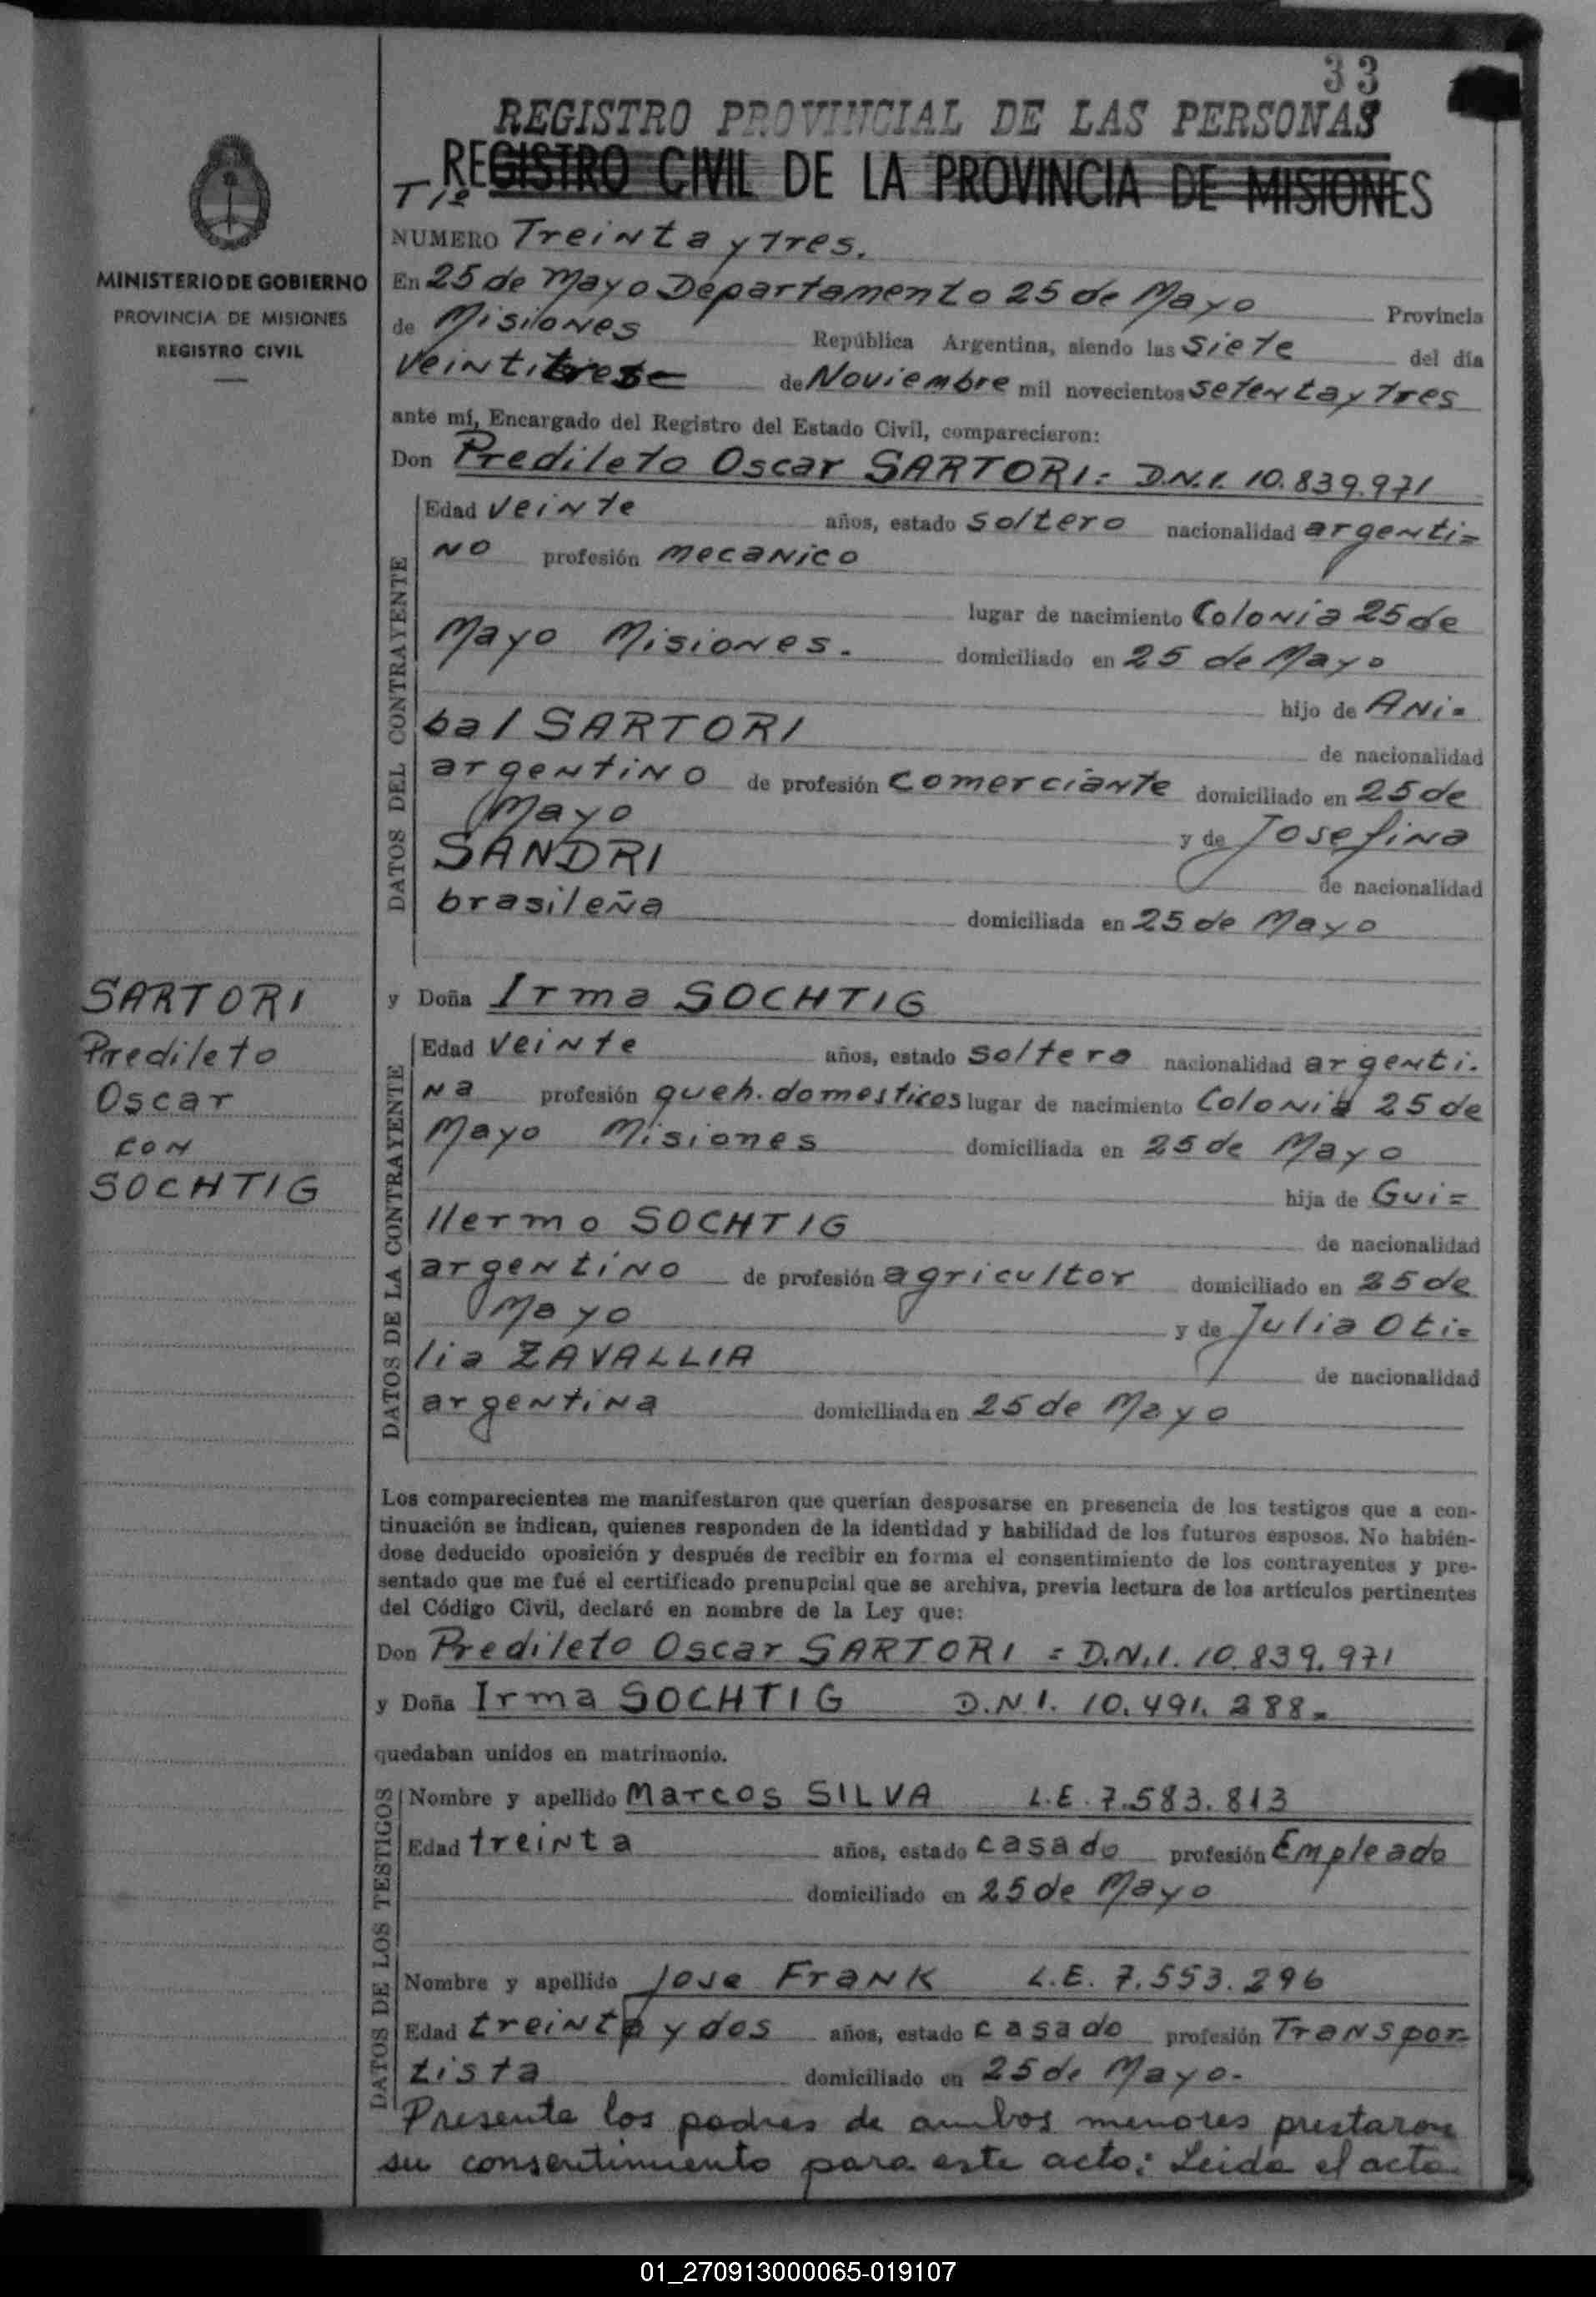 33
REGISTRO PROVINCIAL DE LAS PERSONAS
REGISTRO CIVIL DE LA PROVINCIA DE MISIONES
T 1º
MINISTERIO DE GOBIERNO
PROVINCIA DE MISIONES
REGISTRO CIVIL
NUMERO Treinta y Tres.
En 25 de Mayo Departamento 25 de Mayo Provincia
de Misiones República Argentina, siendo las Siete del día
Veintitres de Noviembre mil novecientos setenta y Tres
ante mí, Encargado del Registro del Estado Civil, comparecieron:
Don Predileto Oscar SARTORI = D.N.I. 10.839.971
DATOS DEL CONTRAYENTE
Edad Veinte años, estado Soltero nacionalidad argenti=
no profesión mecanico
lugar de nacimiento Colonia 25 de
Mayo Misiones. domiciliado en 25 de Mayo
hijo de Ani=
bal SARTORI de nacionalidad
argentino de profesión Comerciante domiciliado en 25 de
Mayo y de Josefina
SANDRI de nacionalidad
brasileña domiciliada en 25 de Mayo
SARTORI
Predileto
Oscar
con
SOCHTIG
y Doña Irma SOCHTIG
DATOS DE LA CONTRAYENTE
Edad Veinte años, estado Soltera nacionalidad argenti.
na profesión queh. domesticos lugar de nacimiento Colonia 25 de
Mayo Misiones domiciliada en 25 de Mayo
hija de Gui=
llermo SOCHTIG de nacionalidad
argentino de profesión agricultor domiciliado en 25 de
Mayo y de Julia Oti=
lia ZAVALLIA de nacionalidad
argentina domiciliada en 25 de Mayo
Los comparecientes me manifestaron que querían desposarse en presencia de los testigos que a con-
tinuación se indican, quienes responden de la identidad y habilidad de los futuros esposos. No habién-
dose deducido oposición y después de recibir en forma el consentimiento de los contrayentes y pre-
sentado que me fué el certificado prenupcial que se archiva, previa lectura de los artículos pertinentes
del Código Civil, declaré en nombre de la Ley que:
Don Predileto Oscar SARTORI = D.N.I. 10.839.971
y Doña Irma SOCHTIG D.N.I. 10.491.288=
quedaban unidos en matrimonio.
DATOS DE LOS TESTIGOS
Nombre y apellido Marcos SILVA L.E. 7.583.813
Edad treinta años, estado casado profesión Empleado
domiciliado en 25 de Mayo
Nombre y apellido Jose Frank L.E. 7.553.296
Edad treinta y dos años, estado casado profesión Transpor-
tista domiciliado en 25 de Mayo.
Presente los padres de ambos menores prestaron
su consentimiento para este acto: Leida el acta
01_270913000065-019107